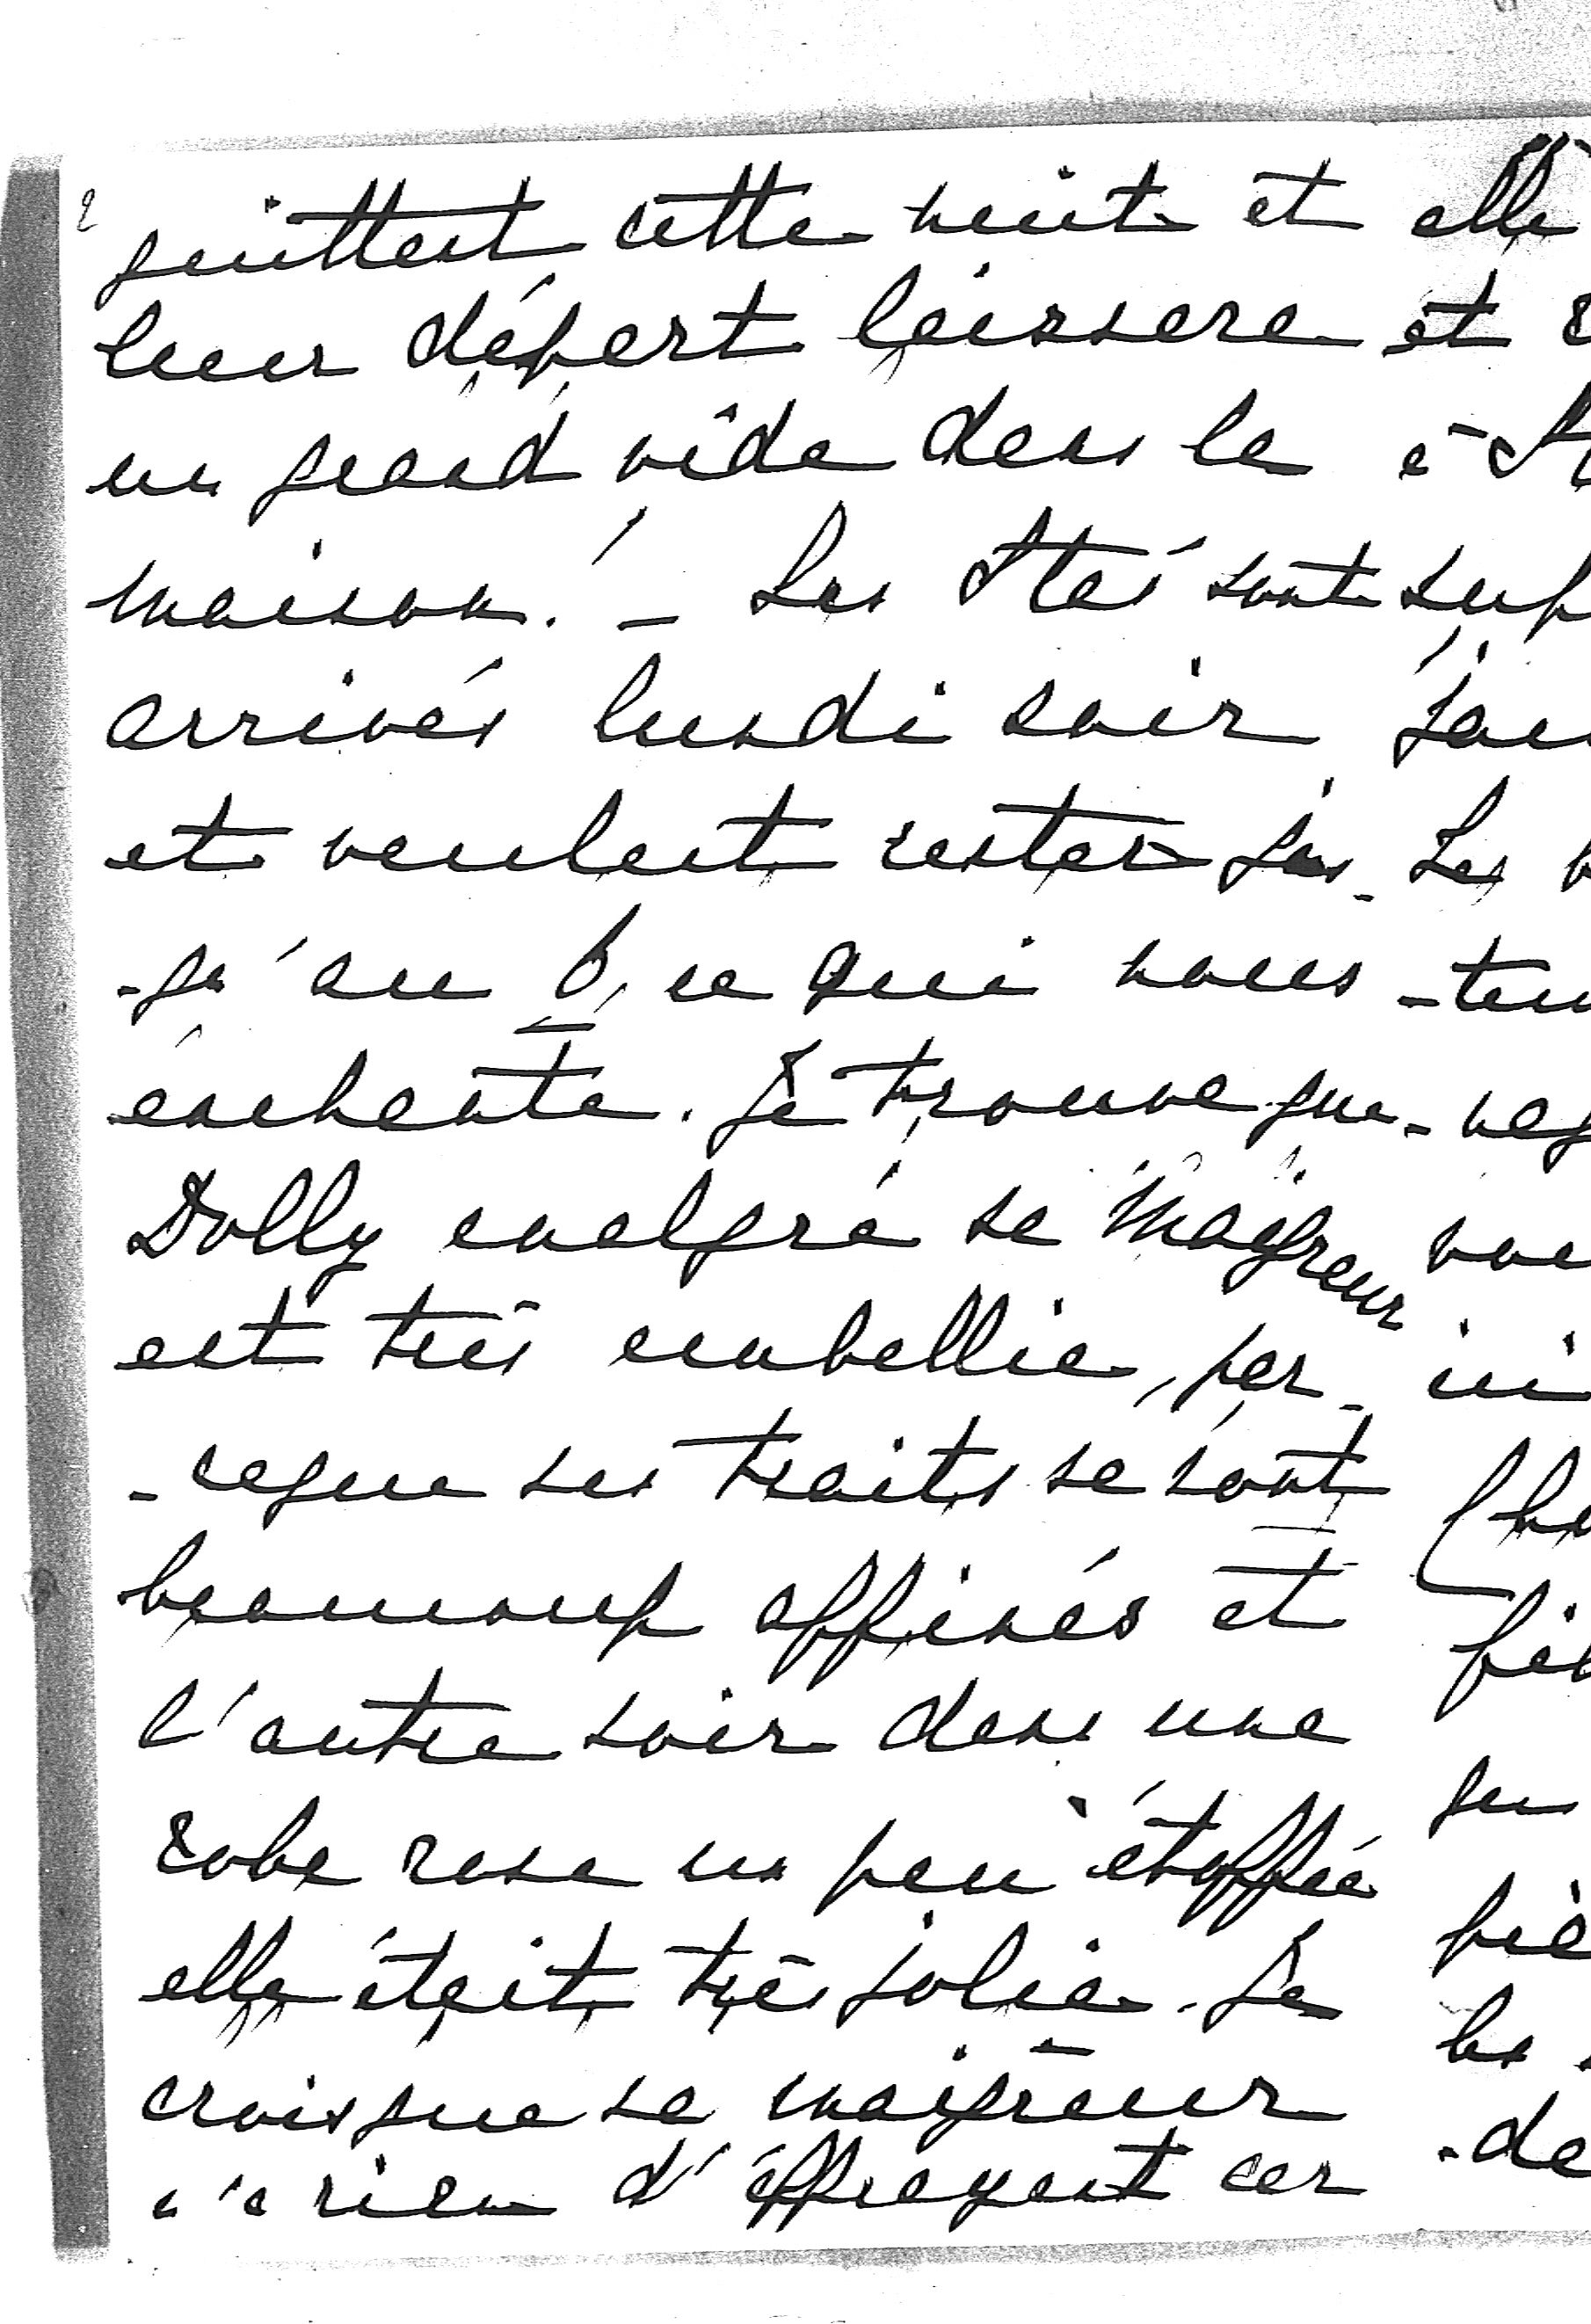 quittent cette nuit et
leur départ laissera
un grand vide dans la
maison! _ Les sont
arrivés lundi soir
et veulent rester jus_
-qu'au 6, ce qui nous
enchante. Je trouve que
Dolly malgré sa maigreur
est très embellie, par_
-ceque ses traits se sont
beaucoup affinés et
l'autre soir dans une
robe rose un peu étoffée
elle était très jolie. Je
crois que sa maigreur
n'a rien d'effrayant car
elle
et
à
-de